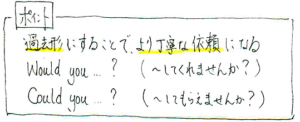 ポイント
過去形にすることで、より丁寧な依頼になる
Would you … ? (〜してくれませんか?)
Could you … ? (〜してもらえませんか?)